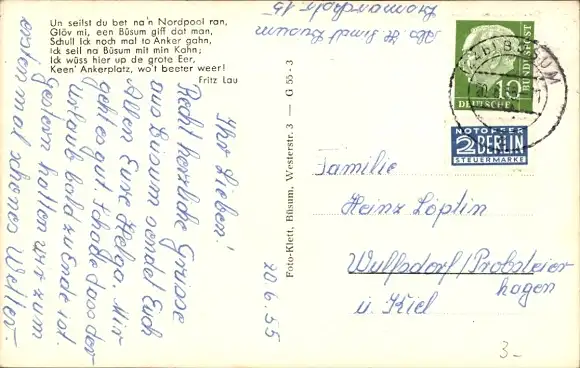 Un seilst du bet na'n Nordpool ran,
Glöv mi, een Büsum giff dat man,
Schull Ick noch mal to Anker gahn,
Ick seil na Büsum mit min Kahn;
Ick wüss hier up de grote Eer,
Keen' Ankerplatz, wo't beeter weer!
Fritz Lau
Ihr Lieben!
Recht herzliche Grüsse
aus Büsum sendet Euch
Allen Eure Helga. Mir
geht es gut. Schade das der
Urlaub bald zu Ende ist.
Gestern hatten wir zum
ersten mal schönes Wetter.
20.6.55
Foto-Klett, Büsum, Westerstr. 3 — G 55-3
Abs. H. Büsum
15
BÜSUM
10
DEUTSCHE
BUNDESPOST
NOTOPFER
2 BERLIN
STEUERMARKE
Familie
Heinz Loptin
Wulfsdorf/Probsteier
hagen
ü. Kiel
3-